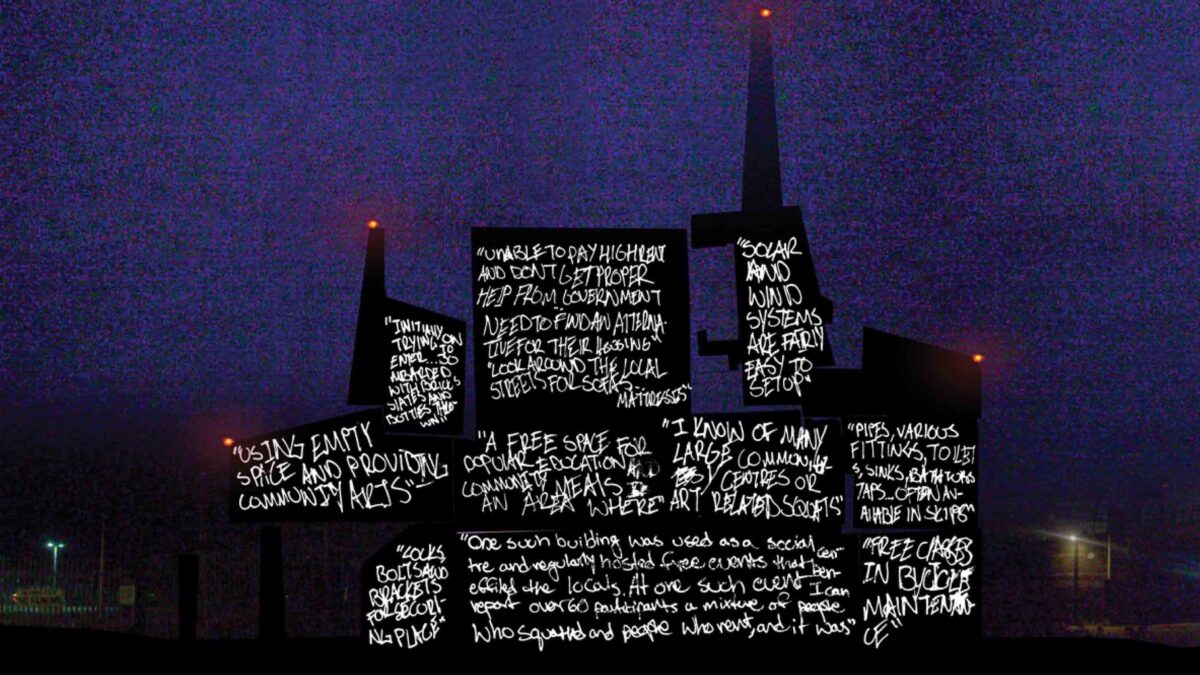 "UNABLE TO PAY HIGH RENT
AND DON'T GET PROPER
HELP FROM GOVERNMENT
NEED TO FIND AN ALTERNA-
TIVE FOR THEIR HOUSING"
"LOOK AROUND THE LOCAL
STREETS FOR SOFAS
MATTRESSES"
"SOLAR
AND
WIND
SYSTEMS
ARE FAIRLY
EASY TO
SETUP"
"INITIALLY
TRYING TO
ENTER...
WITH BRICKS
SLATES AND
BOTTLES
"USING EMPTY
SPACE AND PROVIDING
COMMUNITY ARTS"
"A FREE SPACE FOR
POPULAR EDUCATION
COMMUNITY MEALS
AN AREA WHERE"
"I KNOW OF MANY
LARGE COMMUNI
TY CENTRES OR
ART RELATED SQUATS"
"PIPES, VARIOUS
FITTINGS, TOILET
S, SINKS, BATHTUBS
TAPS...OFTEN AV-
AILABLE IN SKIPS"
"LOCKS,
BOLTS AND
BRACKETS
FOR SECURI-
NG PLACE"
"One such building was used as a social cen-
tre and regularly hosted free events that ben-
efited the locals. At one such event I can
report over 60 participants a mixture of people
who squatted and people who rent, and it was"
"FREE CLASSES
IN BYCICLE
MAINTENAN
CE"